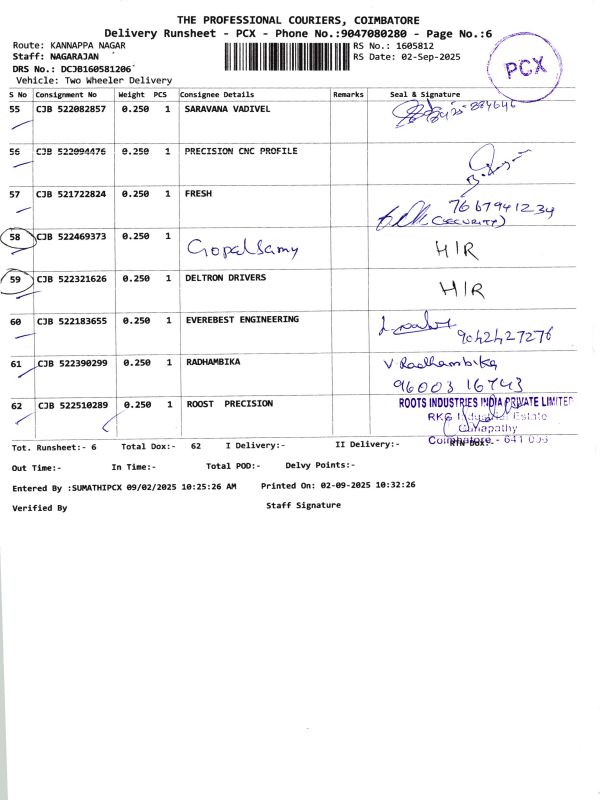 THE PROFESSIONAL COURIERS, COIMBATORE
Delivery Runsheet - PCX - Phone No.:9047080280 - Page No.:6
Route: KANNAPPA NAGAR
RS No.: 1605812
Staff: NAGARAJAN
RS Date: 02-Sep-2025
DRS No.: DCJB160581206
Vehicle: Two Wheeler Delivery
PCX
S No Consignment No Weight PCS Consignee Details Remarks Seal & Signature
55 CJB 522082857 0.250 1 SARAVANA VADIVEL
56 CJB 522094476 0.250 1 PRECISION CNC PROFILE
57 CJB 521722824 0.250 1 FRESH 7667941234
(SECURITY)
58 CJB 522469373 0.250 1 Gopalsamy H/R
59 CJB 522321626 0.250 1 DELTRON DRIVERS H/R
60 CJB 522183655 0.250 1 EVEREBEST ENGINEERING
9042427276
61 CJB 522390299 0.250 1 RADHAMBIKA V Radhambika
96003 16743
62 CJB 522510289 0.250 1 ROOST PRECISION ROOTS INDUSTRIES INDIA PRIVATE LIMITED
RKG Industrial Estate
Ganapathy
Coimbatore - 641 006
Tot. Runsheet:- 6 Total Dox:- 62 I Delivery:- II Delivery:- RTN Dox:-
Out Time:- In Time:- Total POD:- Delvy Points:-
Entered By :SUMATHIPCX 09/02/2025 10:25:26 AM Printed On: 02-09-2025 10:32:26
Verified By Staff Signature